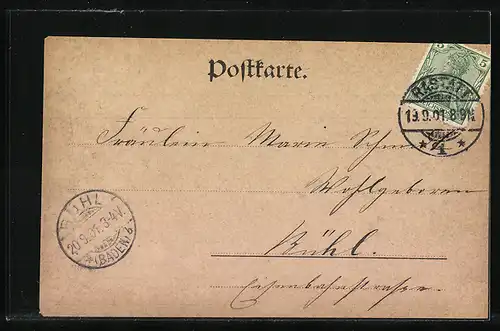 5 5
Postkarte.
RASTATT
19.9.01.8-9N.
* 4 *
Fräulein Marie
Wohlgeboren
Bühl.
Eisenbahnstrasse.
BÜHL
20.9.01.3-4V.
(BADEN)